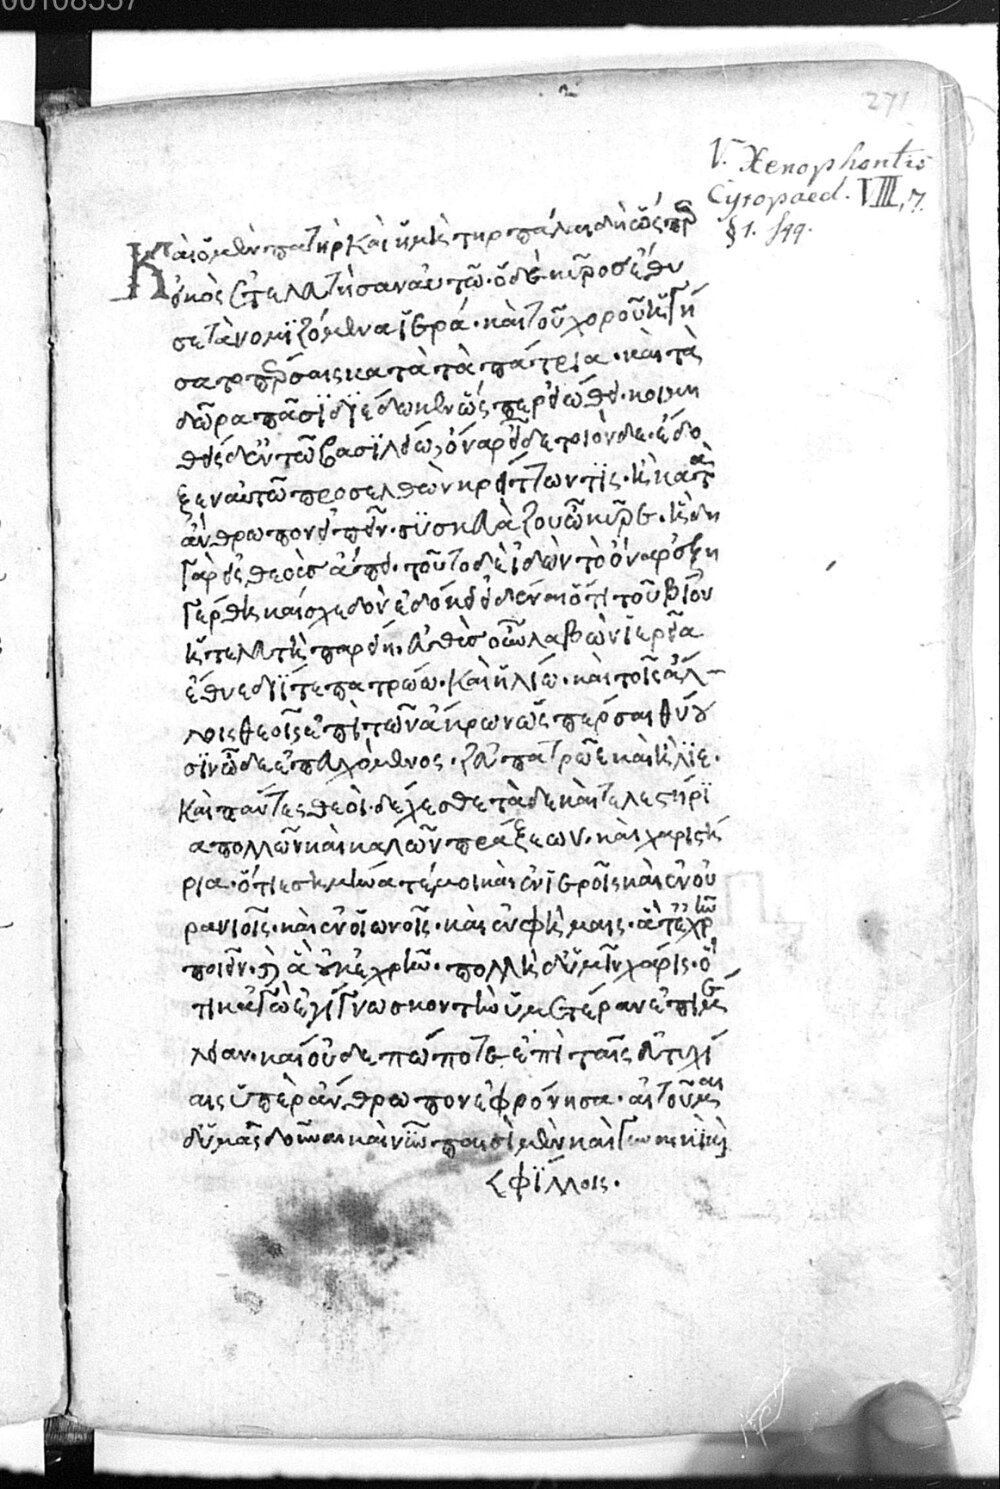 00108557
2
271
V. Xenophontis
Cyropaed. VIII, 7.
§ 1. sqq.
Καὶ ὁ μὲν πατὴρ καὶ ἡ μήτηρ πάλαι δὴ ὥσπερ
εἰκὸς ἐτελευτήσαν αὐτῶ· ὁ δὲ κῦρος ἔθυ
σε τὰ νομϊζόμενα ἱερά· καὶ τοῦ χοροῦ ἡγή
σατο πέρσαις κατὰ τὰ πάτρια· καὶ τὰ
δῶρα πᾶσϊ διέδωκεν ὥσπερ εἰώθει· κοιμη
θεὶς δ' ἐν τῶ βασϊλείω, ὄναρ εἶδε τοιόνδε· ἔδο
ξεν αὐτῶ προσελθὼν κρείττων τϊς· ἢ κατὰ
ἄνθρωπον εἰπεῖν· συσκευάζου ὦ κῦρε· ἤδη
γὰρ εἰς θεοὺς ἄπει· τοῦτο δὲ ἰδὼν τὸ ὄναρ ἐξη
γέρθη καὶ σχεδὸν ἐδόκει εἰδέναι ὅτι τοῦ βίου
ἡ τελευτὴ παρείη· εὐθὺς οὖν λαβὼν ἱερεῖα
ἔθυε διΐ τε πατρώω· καὶ ἡλίω· καὶ τοῖς ἄλ-
λοις θεοῖς ἐπὶ τῶν ἄκρων ὡς πέρσαι θύου
σϊν ὧδε ἐπευχόμενος· ζεῦ πατρῶε καὶ ἥλϊε·
καὶ πάντες θεοὶ· δέχεσθε τάδε καὶ τελεστήρϊ
α πολλῶν καὶ καλῶν πράξεων· καὶ χαριστή
ρια· ὅτι ἐσημήνατέ μοι καὶ ἐν ἱεροῖς καὶ ἐν οὐ
ρανίοις· καὶ ἐν οἰωνοῖς· καὶ ἐν φήμαις· ἅ τ' ἐχρῆν
ποιεῖν· καὶ ἃ οὐκ ἐχρῆν· πολλὴ δ' ὑμῖν χάρις· ὅ
τι κἀγὼ ἐγίγνωσκον τὴν ὑμετέραν ἐπιμέ
λειαν· καὶ οὐδεπώποτε ἐπὶ ταῖς εὐτυχί
αις ὑπὲρ ἄνθρωπον ἐφρόνησα· αἰτοῦμαι
δ' ὑμᾶς δοῦναι καὶ νῦν παισὶ μὲν καὶ γυναικὶ καὶ
φϊλοις.